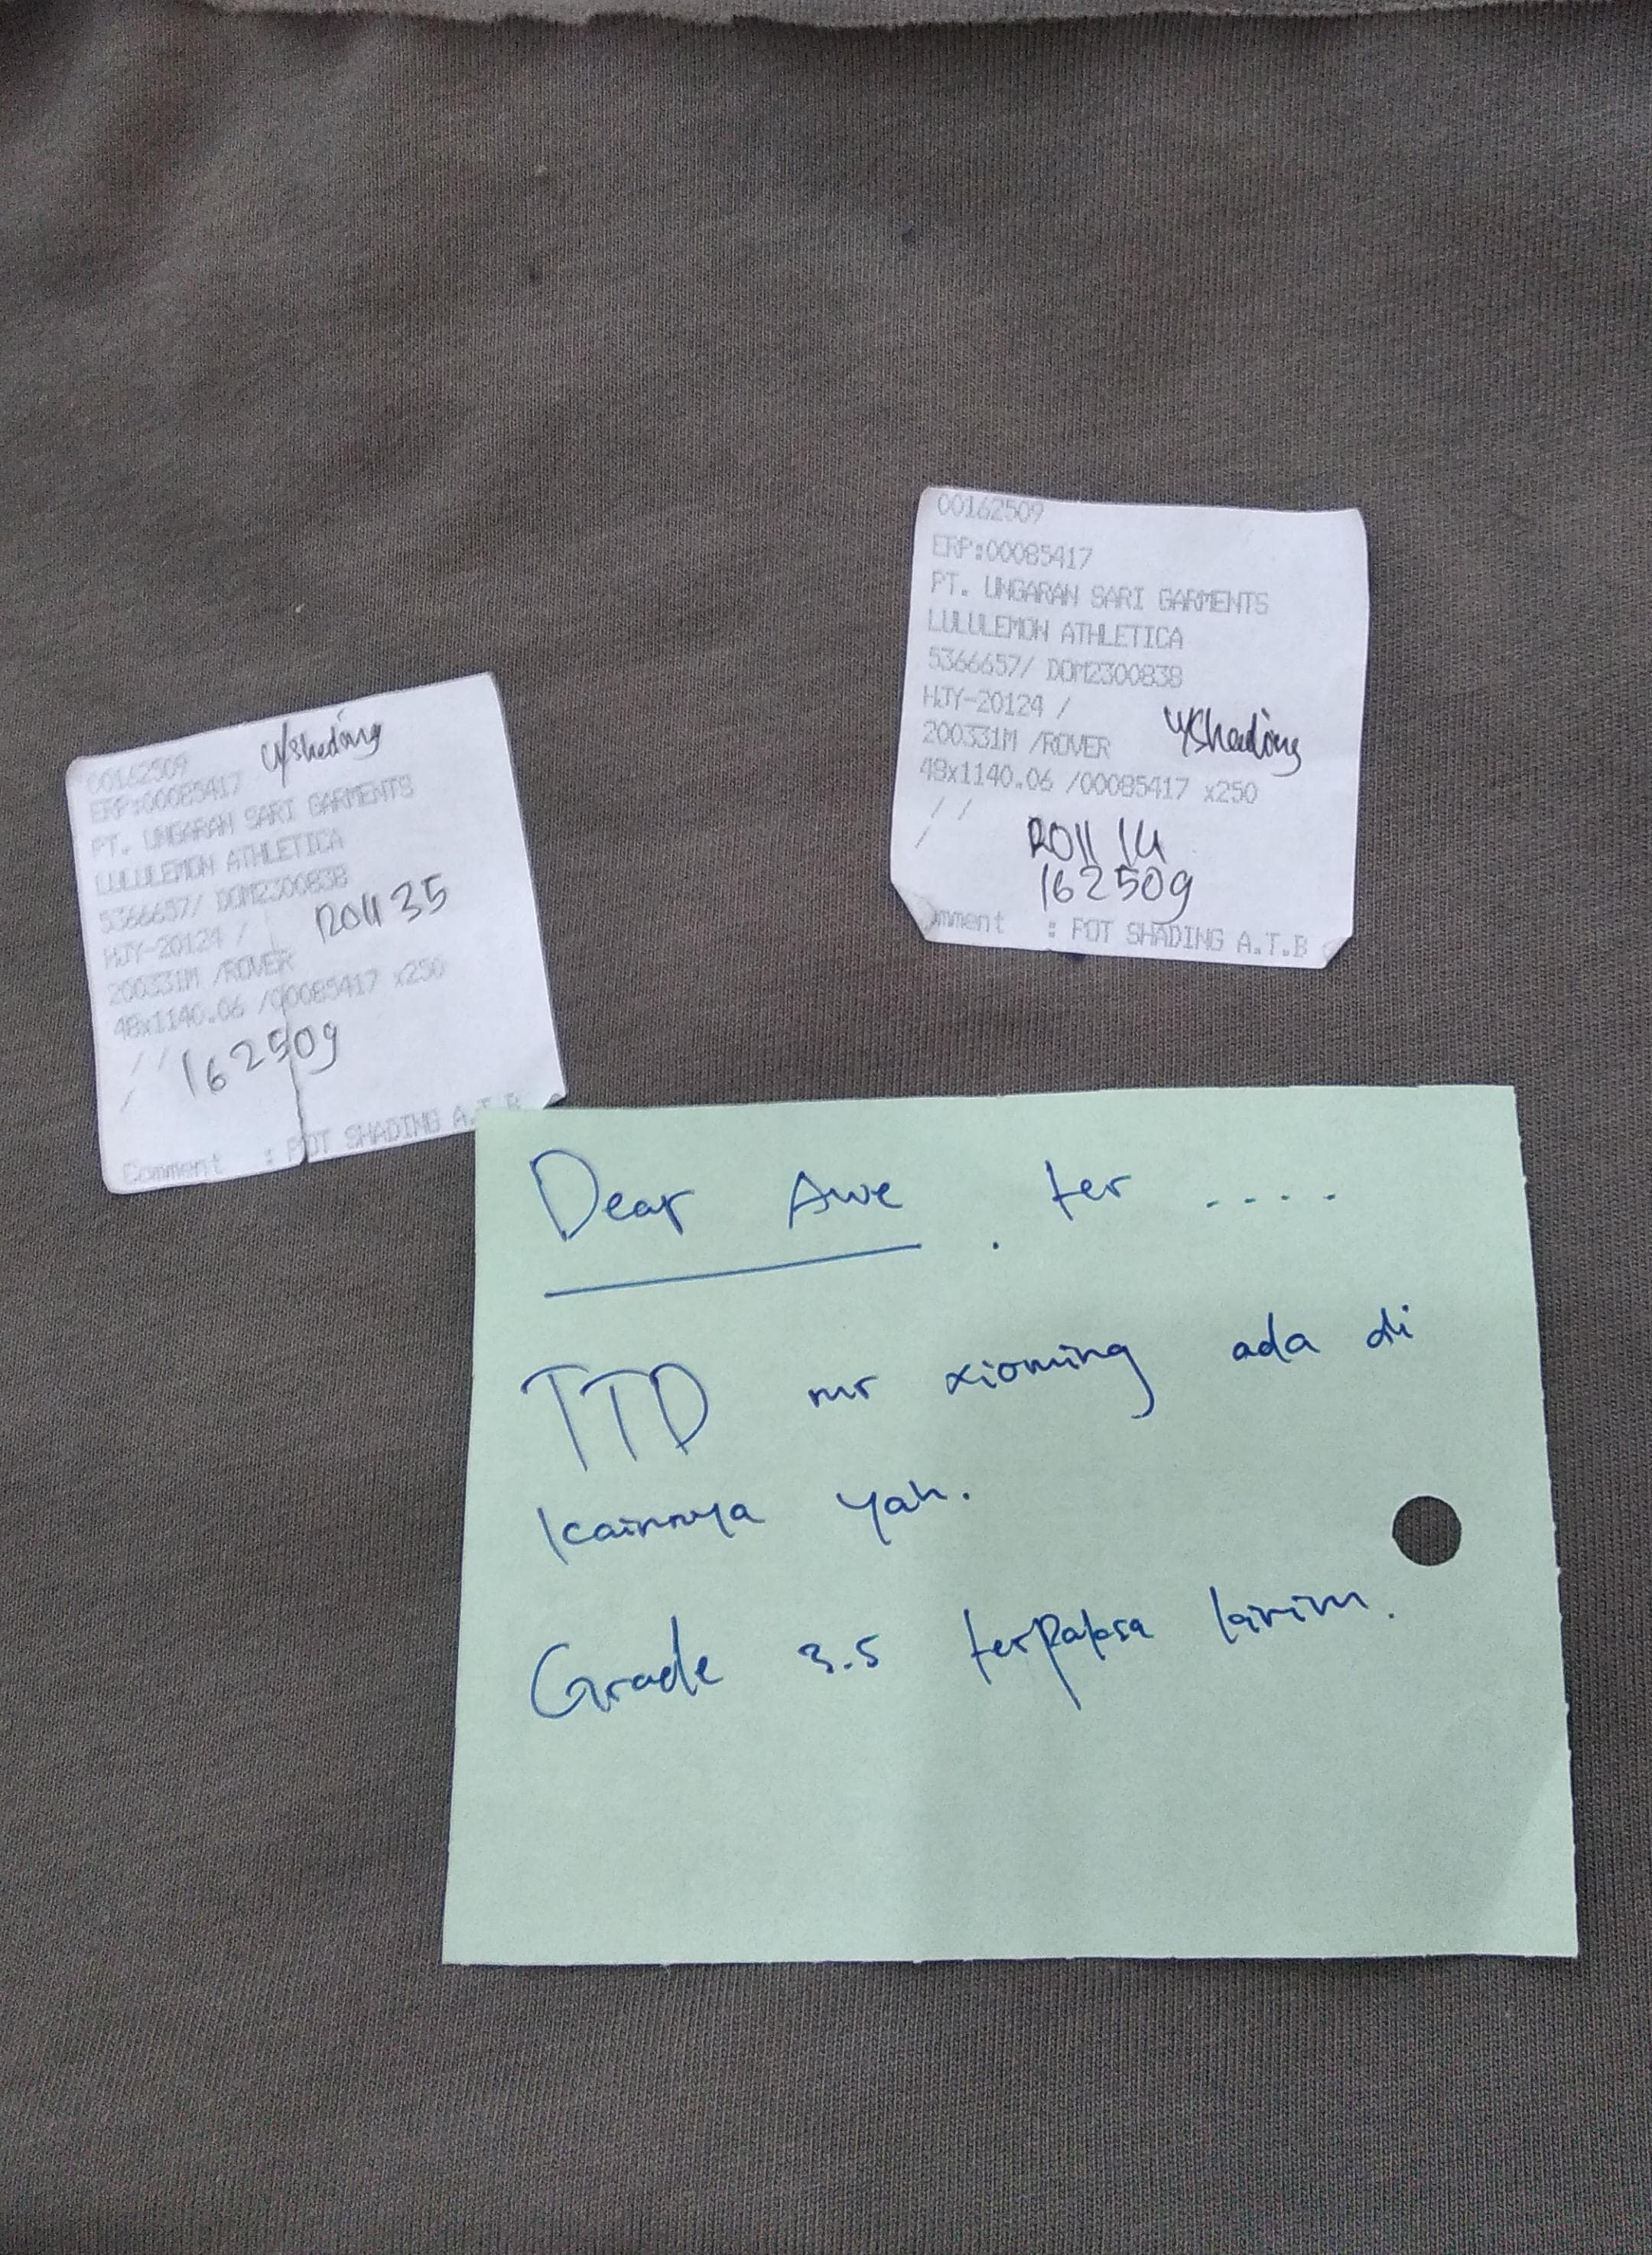 00162509
ERP:00085417
PT. UNGARAN SARI GARMENTS
LULULEMON ATHLETICA
5366657/ DOM2300838
HJY-20124 /
200331M /ROVER
48x1140.06 /00085417 x250
/ /
/
Comment : POT SHADING A.T.B
U/Shading
Roll 35
162509
00162509
ERP:00085417
PT. UNGARAN SARI GARMENTS
LULULEMON ATHLETICA
5366657/ DOM2300838
HJY-20124 /
200331M /ROVER
U/Shading
48x1140.06 /00085417 x250
/ /
/
Roll 14
162509
omment : POT SHADING A.T.B
Dear Awe . ter ....
TTD mr xioming ada di
kainnya yah.
Grade 3.5 terpaksa kirim.